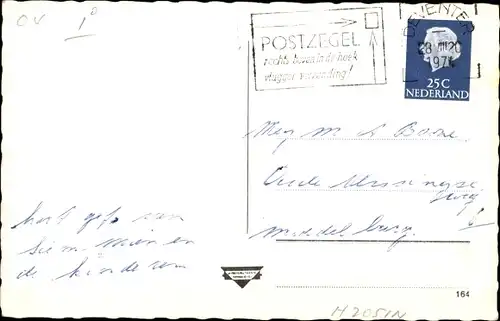 CV 1⁰
POSTZEGEL
rechts boven in de hoek
vlugger verzending!
DEVENTER
28 VIII 20
1971
25C
NEDERLAND
Mej M A Boone
Oude
middelburg
Hart van
Siem Mien en
de kinderen
164
H2051N